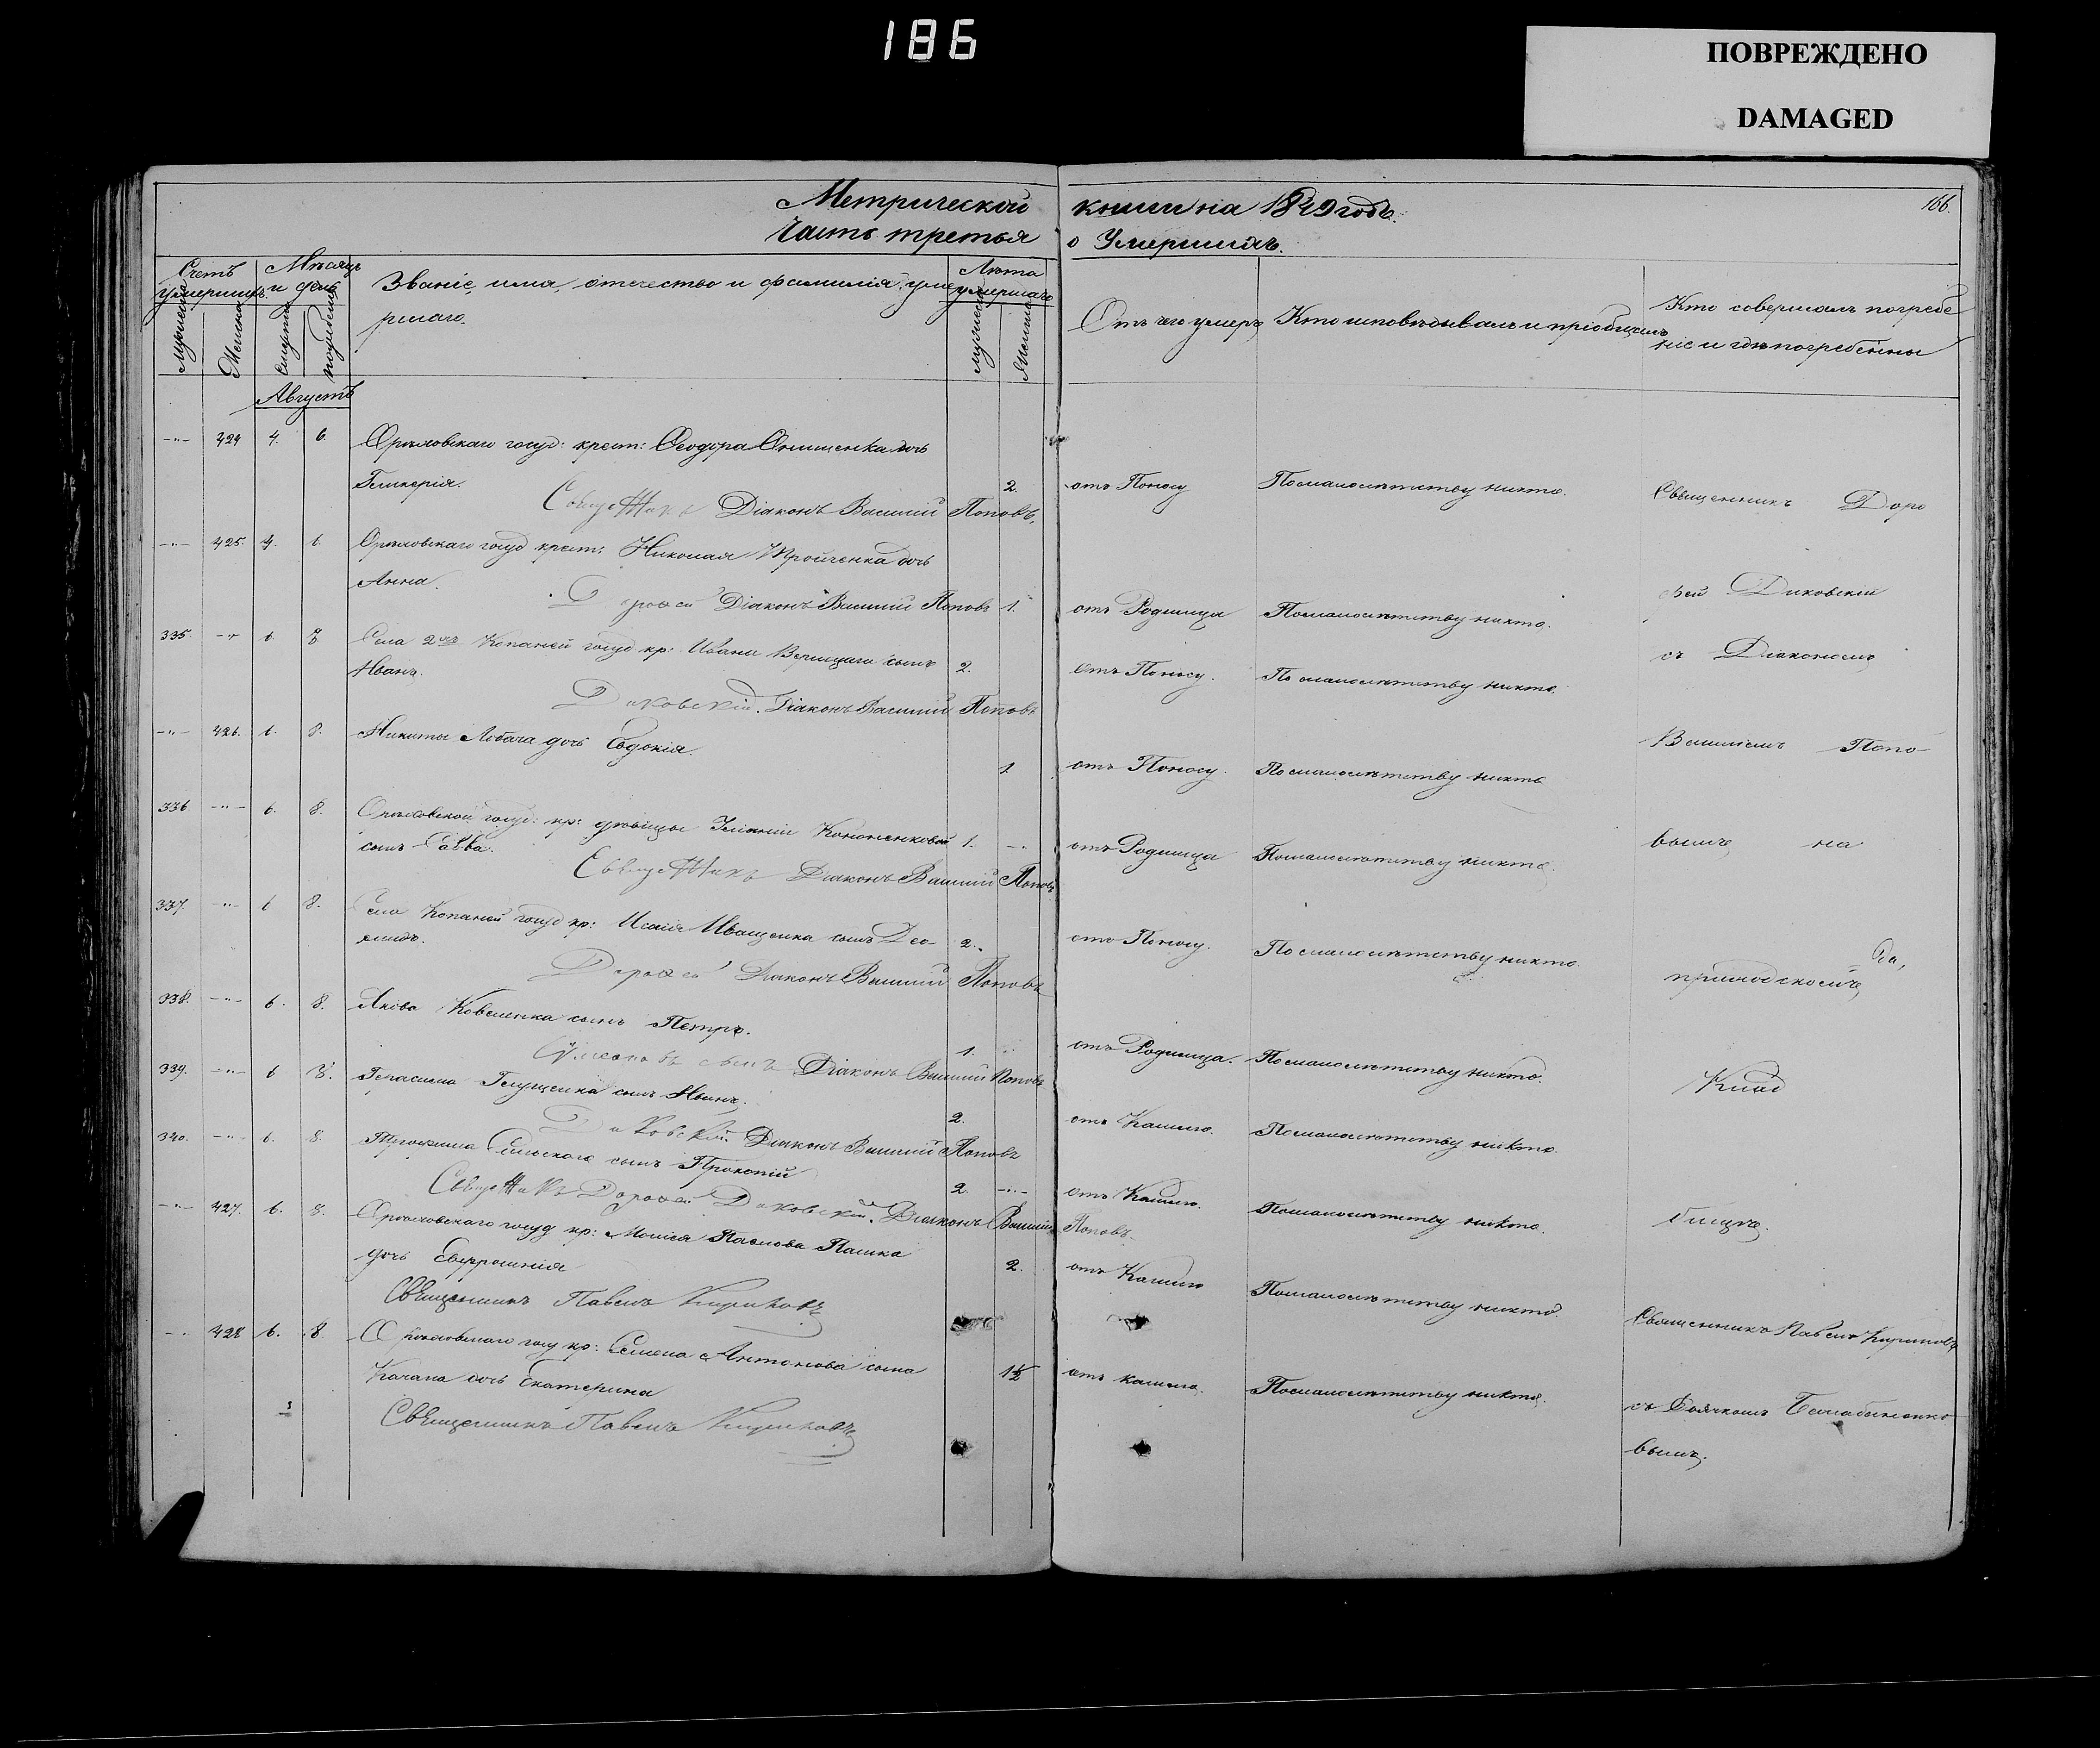 186
ПОВРЕЖДЕНО
DAMAGED
Метрической книги на 1849 годъ.
166.
Часть третья о Умершихъ.
Счетъ умершихъ.
Мужеска
Женска
Мѣсяцъ и день
смерти
погребенія
Званіе, имя, отчество и фамилія уме
ршаго.
Лѣта умершаго
мужеска
Женска
Отъ чего умеръ
Кто исповѣдывалъ и пріобщилъ
Кто совершалъ погребе
ніе и гдѣ погребены
Августъ
-"- 424 4. 6. Орѣховскаго госуд: крест: Ѳеодора Онищенка дочь
Гликерія. 2. отъ Поносу По малолѣтству никто. Священникъ Доро
Священникъ Діаконъ Василій Поповъ.
-"- 425. 4. 6. Орѣховскаго госуд крест: Николая Тройченка дочь
Анна. 1. отъ Родимца По малолѣтству никто. ѳей Диковскій
Дороѳей Діаконъ Василій Поповъ
335. -"- 6. 8 Села 2хъ Копаней госуд кр: Ивана сынъ 2.
Иванъ. отъ Поносу. По малолѣтству никто. съ Діакономъ
Диковскій. Діаконъ Василій Поповъ
-"- 426. 6. 8. Никиты Лобача дочь Евдокія. 1. отъ Поносу. По малолѣтству никто Василіемъ Попо-
336. -"- 6. 8. Орѣховской госуд: кр: дѣвицы Кононенковой 1. -"-
сынъ Савва. отъ Родимца По малолѣтству никто. вымъ на
Священникъ Діаконъ Василій Поповъ
337. -"- 6 8. Села Копаней госуд кр: Исаія Иващенка сынъ Део- 2.
мидъ. отъ Поносу. По малолѣтству никто. приходскомъ
Дороѳей Діаконъ Василій Поповъ
338. -"- 6. 8. Якова Коваленка сынъ Петръ. 1. отъ Родимца. По малолѣтству никто. Клад
Діаконъ Василій Поповъ
339. -"- 6 8. Герасима Глущенка сынъ Иванъ. 2. отъ Кашлю. По малолѣтству никто.
Диковскій Діаконъ Василій Поповъ
340. -"- 6. 8. Трофима сынъ Прокопій 2. -"- отъ Кашлю. По малолѣтству никто. бищѣ.
Священникъ Дороѳей Диковскій. Діаконъ Василій Поповъ.
-"- 427. 6. 8. Орѣховскаго госуд кр: Моисея Павлова Пашка
дочь Евфросинія 2. отъ Кашлю По малолѣтству никто.
Священникъ Павелъ Кириковъ
Священникъ Павелъ Кириковъ
-"- 428 6. 8. Орѣховскаго госу кр: Семена Антонова сына
Качана дочь Екатерина 1½ отъ кашлю. По малолѣтству никто. съ Дьячкомъ
Священникъ Павелъ Кириковъ
вымъ.